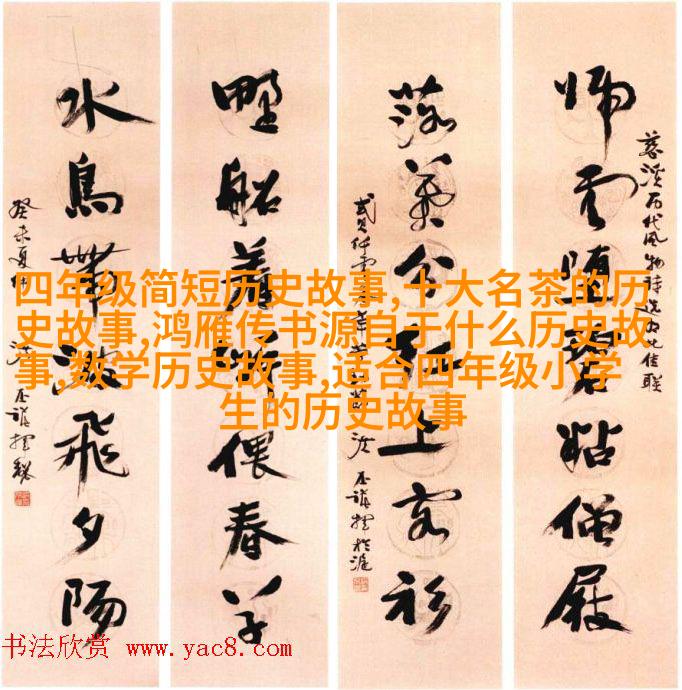 云堕碧粘僧屐
落葉分红上客衫
野船着岸偎春草
水鳥帶波飛夕陽
癸未夏
四年级简短历史故事,十大名茶的历
史故事,鸿雁传书源自于什么历史故
事,数学历史故事,适合四年级小学
生的历史故事
书法欣赏 www.yac8.com